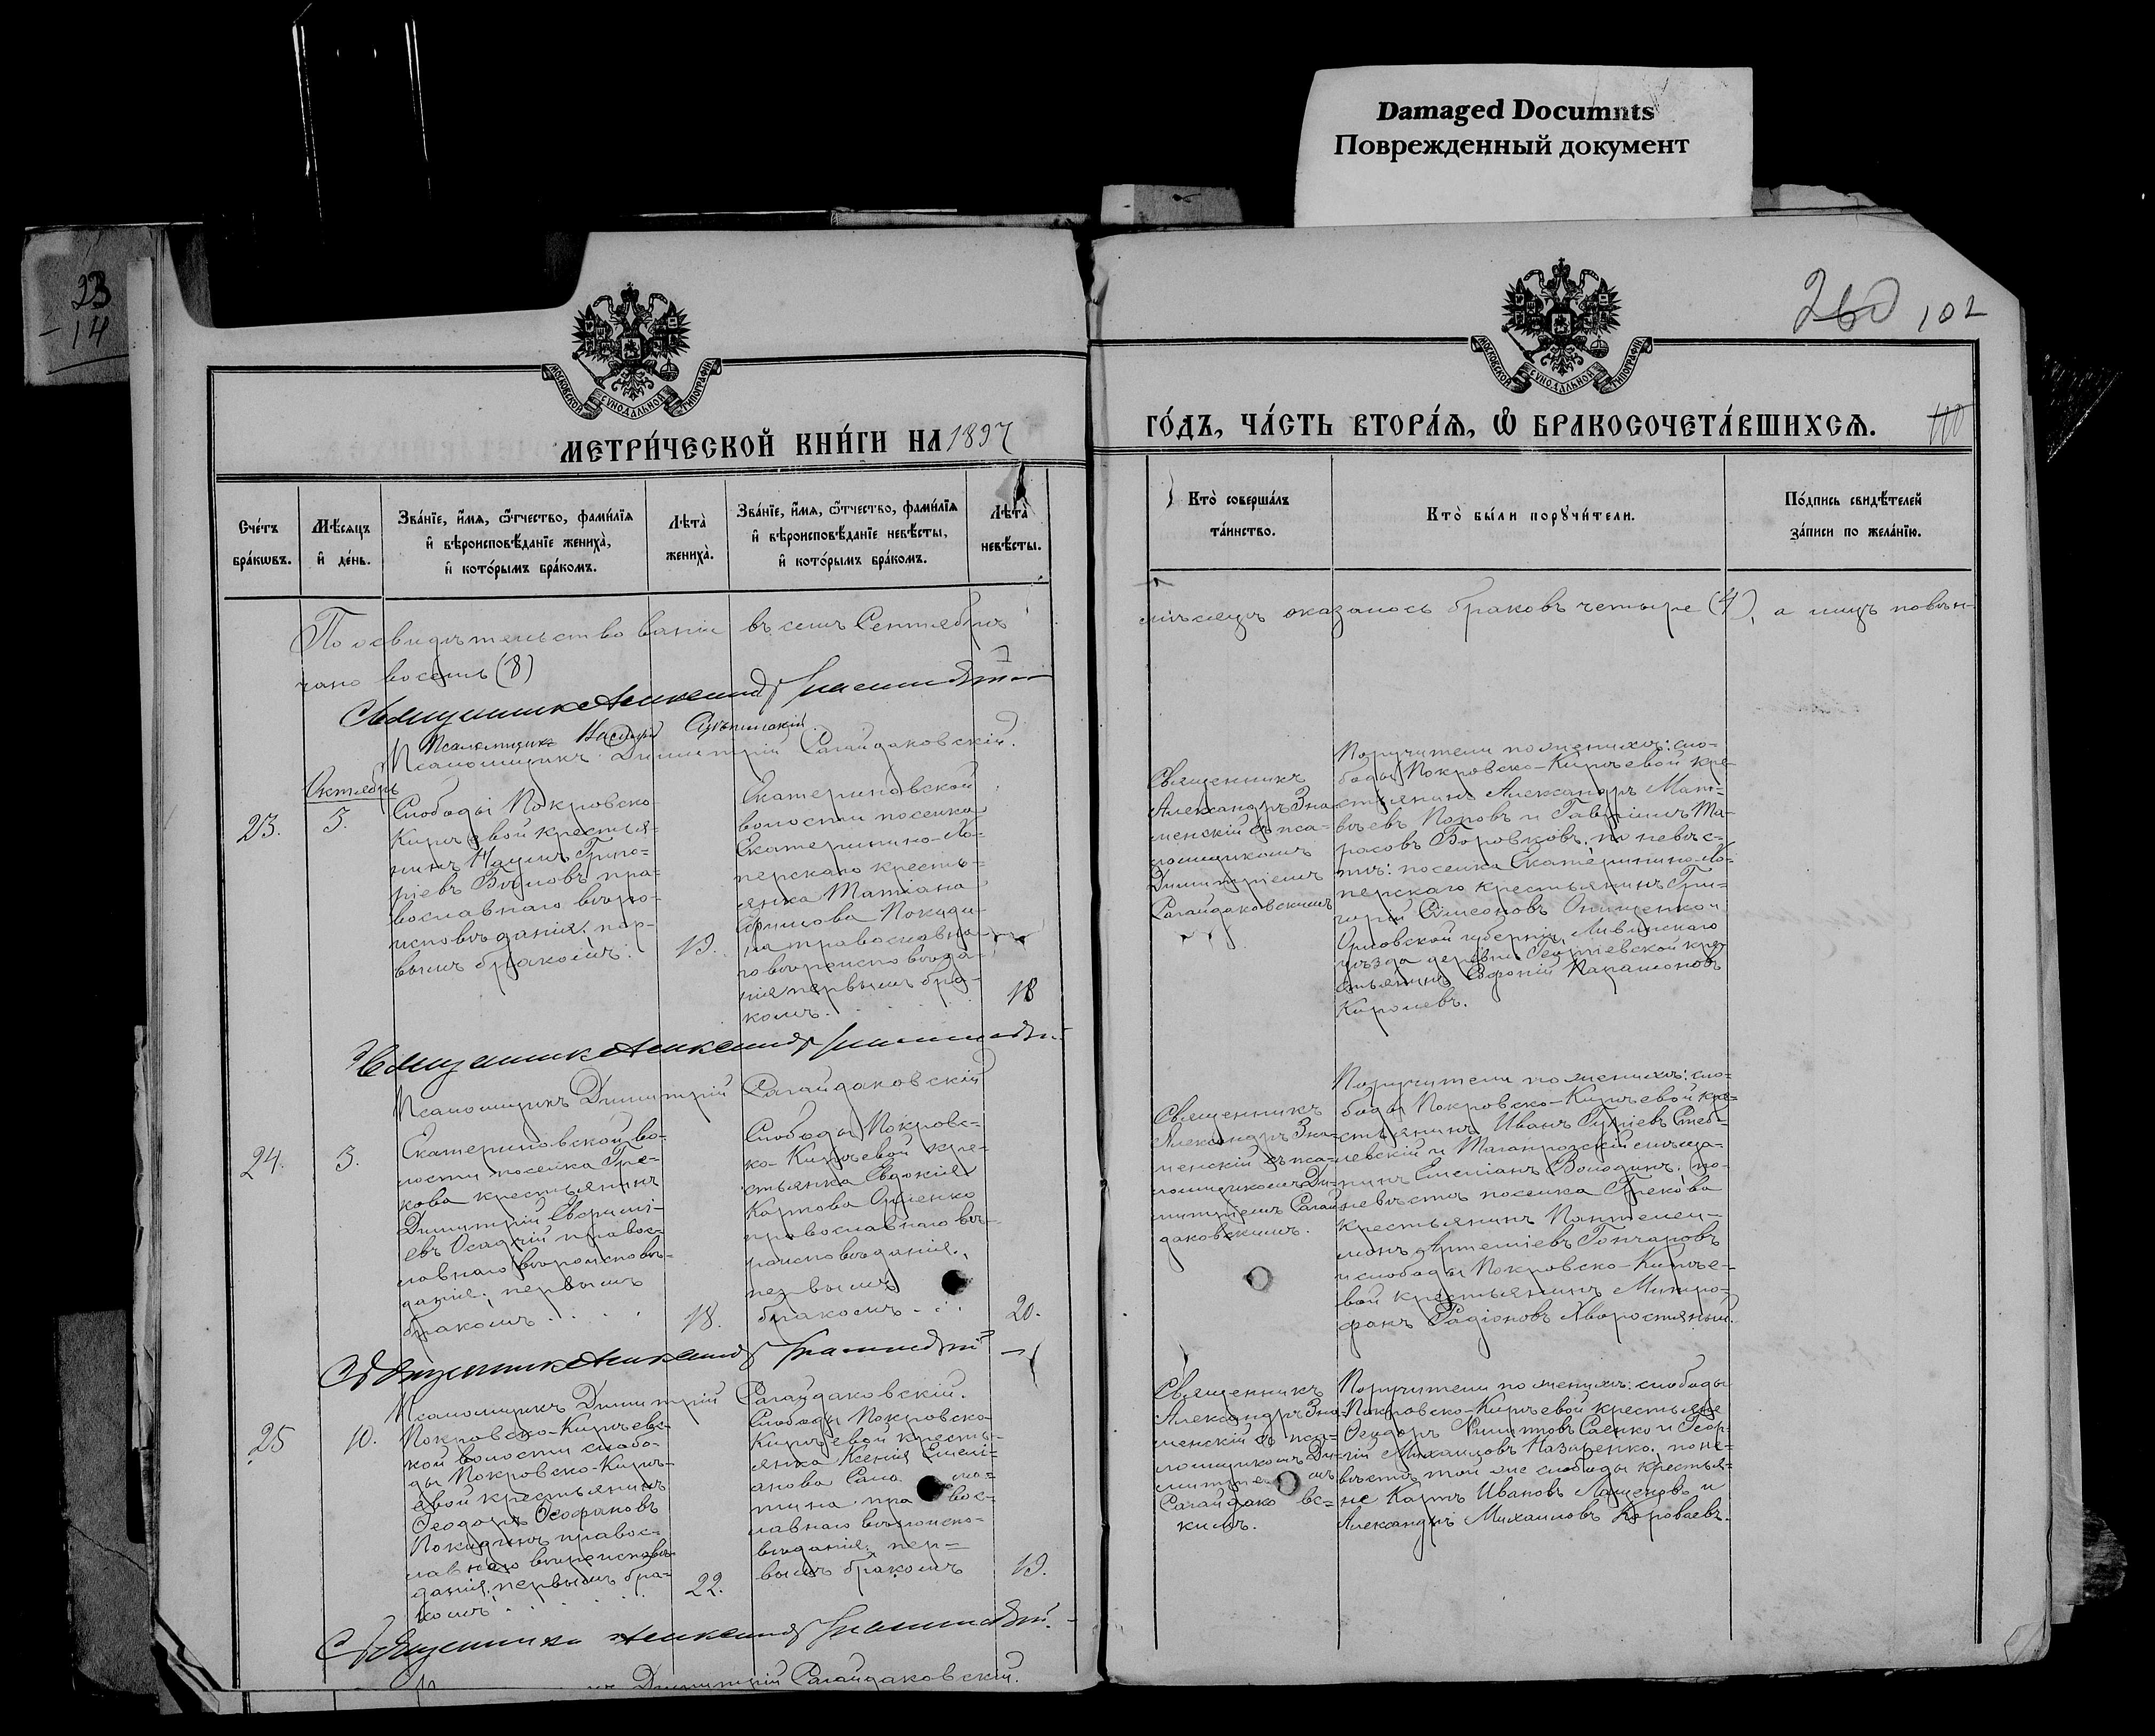 Damaged Documnts
Поврежденный документ
23
- 14
260 102
МОСКОВСКОЙ СѴНОДАЛЬНОЙ ТИПОГРАФІИ
МОСКОВСКОЙ СѴНОДАЛЬНОЙ ТИПОГРАФІИ
МЕТРИ́ЧЕСКОЙ КНИ́ГИ НА 1897
ГО́ДЪ, ЧА́СТЬ ВТОРА́Я, Ѽ БРАКОСОЧЕТА́ВШИХСЯ.
110
Сче́тъ
бра́кѡвъ.
Мѣ́сяцъ
и҆ де́нь.
Зва́нїе, и҆́мя, ѻ҆́тчество, фами́лїя
и҆ вѣроисповѣ́данїе жениха̀,
и҆ кото́рымъ бра́комъ.
Лѣта̀
жениха̀.
Зва́нїе, и҆́мя, ѻ҆́тчество, фами́лїя
и҆ вѣроисповѣ́данїе невѣ́сты,
и҆ кото́рымъ бра́комъ.
Лѣта̀
невѣ́сты.
Кто̀ соверша́лъ
та́инство.
Кто̀ бы́ли порꙋчи́тели.
По́дпись свидѣ́телей
за́писи по жела́нїю.
По освидѣтельствованіи въ семъ Сентябрѣ
мѣсяцѣ оказалось браковъ четыре (4), а лицъ повѣн-
чано восемь (8)
Священникъ Александръ Знаменскій
Псаломщикъ Василій
Псаломщикъ Димитрій Сагайдаковскій.
Октябрь
23.
5.
Слободы Покровско-
Кирѣевой крестья-
нинъ Наумъ Григо-
ріевъ Бѣловъ, пра-
вославнаго вѣро-
исповѣданія, пер-
вымъ бракомъ.
19.
Екатериновской
волости поселка
Екатеринино-Хо-
перскаго кресть-
янка Татіана
Ефимова Покиди-
на православна-
го вѣроисповѣда-
нія первымъ бра-
комъ.
18
Священникъ
Александръ Зна-
менскій съ пса-
ломщикомъ
Димитріемъ
Сагайдаковскимъ
Поручители по женихѣ: сло-
боды Покровско-Кирѣевой кре-
стьянинъ Александръ Мат-
вѣевъ Поповъ и Гавріилъ Та-
расовъ Боровковъ, по невѣс-
тѣ: поселка Екатеринино-Хо-
перскаго крестьянинъ Гри-
горій Симеоновъ Онищенко и
Орловской губерніи, Ливенскаго
уѣзда деревни Георгіевской кре-
стьянинъ Софоній Парамоновъ
Королевъ.
Священникъ Александръ Знаменскій
Псаломщикъ Димитрій Сагайдаковскій
24.
5.
Екатериновской во-
лости поселка Гре-
кова крестьянинъ
Димитрій Евфимі-
евъ Осадчій правос-
лавнаго вѣроисповѣ-
данія, первымъ
бракомъ
18.
Слободы Покровс-
ко-Кирѣевой кре-
стьянка Евдокія
Карпова
православнаго вѣ-
роисповѣданія,
первымъ
бракомъ
20.
Священникъ
Александръ Зна-
менскій съ пса-
ломщикомъ Ди-
митріемъ Сагай-
даковскимъ.
Поручители по женихѣ: сло-
боды Покровско-Кирѣевой кре-
стьянинъ Иванъ Гуріевъ Стеб-
левскій и Таганрогскій мѣща-
нинъ Емеліанъ Володинъ; по
невѣстѣ поселка Грекова
крестьянинъ Пантелеи-
монъ Артеміевъ Гончаровъ
и слободы Покровско-Кирѣе-
вой крестьянинъ Митро-
фанъ Родіоновъ Хворостяный.
Священникъ Александръ Знаменскій
Псаломщикъ Димитрій Сагайдаковскій.
25
10.
Покровско-Кирѣевс-
кой волости слобо-
ды Покровско-Кирѣ-
евой крестьянинъ
Ѳеодоръ Ѳеофановъ
Покидинъ правос-
лавнаго вѣроисповѣ-
данія, первымъ бра-
комъ
22.
Слободы Покровско-
Кирѣевой кресть-
янка Ксенія Емелі-
анова
пра вос-
лавнаго вѣроиспо-
вѣданія; пер-
вымъ бракомъ
19.
Священникъ
Александръ Зна-
менскій съ пса-
ломщикомъ Ди-
митріе мъ
Сагайдако вс-
кимъ.
Поручители по женихѣ: слободы
Покровско-Кирѣевой крестьяне
Ѳеодоръ Филиповъ Саенко и Геор-
гій Михаиловъ Назаренко; по не-
вѣстѣ той же слободы крестья-
не Карпъ Ивановъ Лященко и
Александръ Михаиловъ Короваевъ.
Священникъ Александръ Знаменскій.
Димитрій Сагайдаковскій.